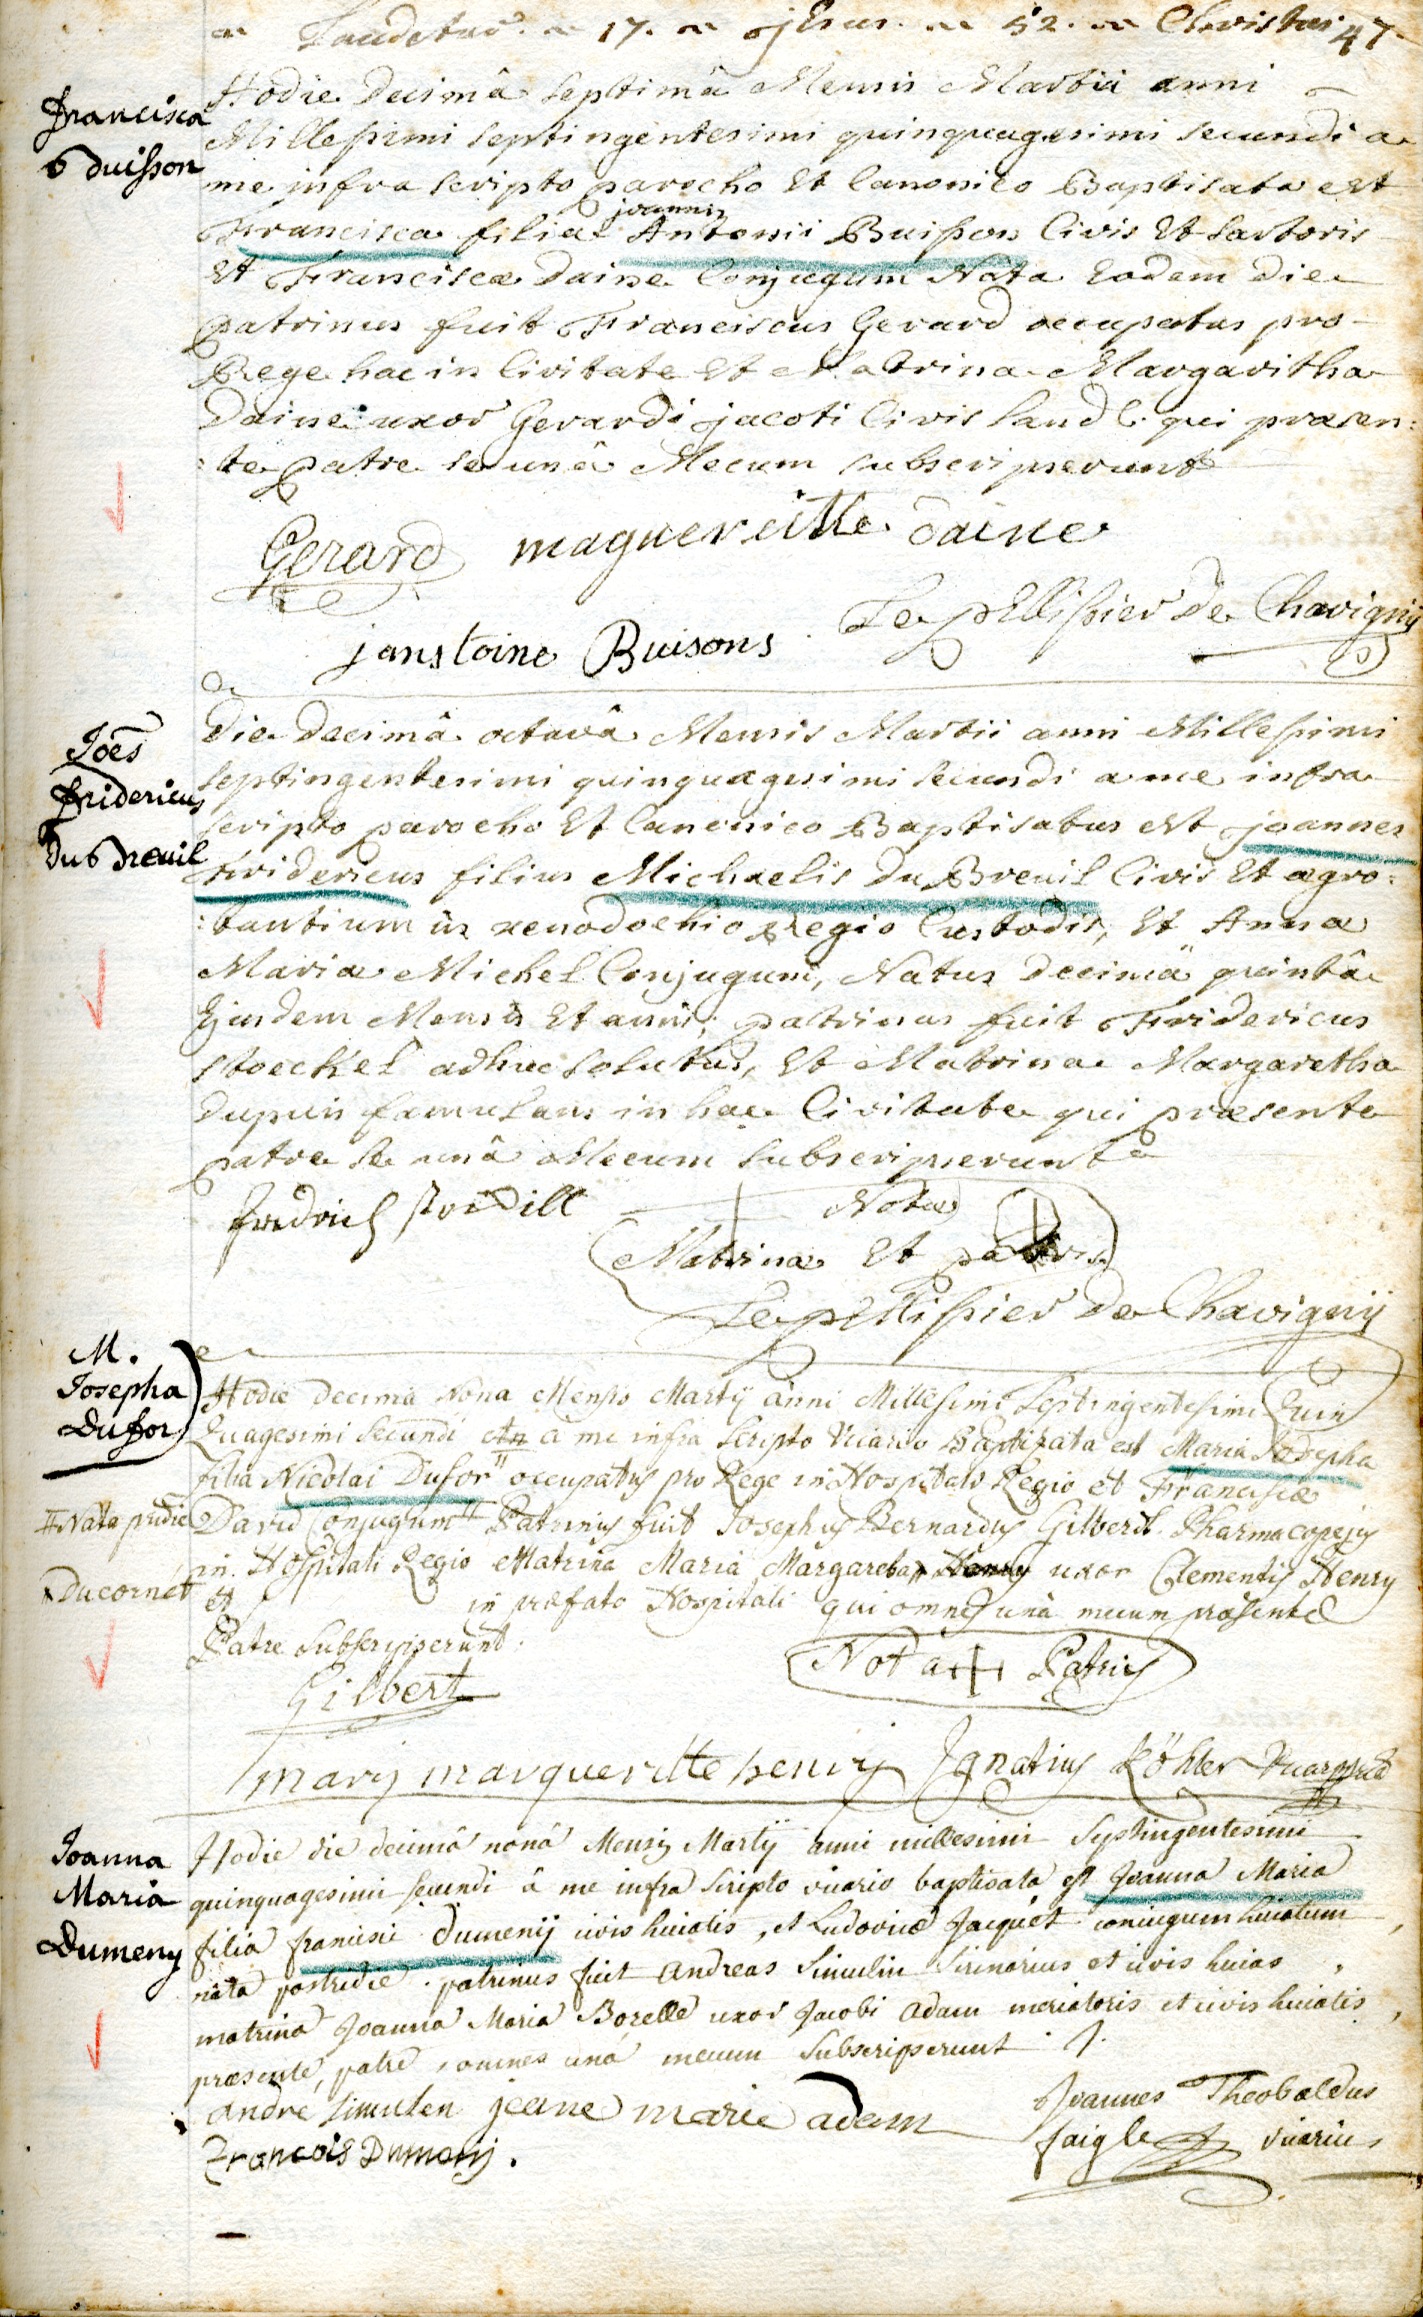 Laudetur. 17. jEsus. 52. Christus 47
Francisca
Buisson
Hodie Decimâ Septimâ Mensis Martii anni
Millesimi septingentesimi quinquagesimi secundi a
me infra scripto parocho Et Canonico Baptisata est
joannis
Francisca filia Antonii Buisson Civis Et Sartoris
Et Franciscæ Daine Conjugum Nata Eodem die
patrinus fuit Franciscus Gerard occupatus pro
Rege hac in Civitate Et Matrina Margaritha
Daine uxor Gerardi jacoti Civis Land: qui præsen:
:te patre se unâ Mecum subscripserunt
Gerard magueritte daine
Le pEllissier De Chavignÿ
janstoine Buisons
Joēs
fridericus
Du breuil
Die Decimâ octavâ Mensis Martii anni Millesimi
septingentesimi quinquagesimi secundi a me infra
scripto parocho Et Canonico Baptisatus est joannes
Fridericus filius Michaelis Du Breuil Civis Et ægro:
:tantium in xenodochio Regio Custodis, Et Annæ
Mariæ Michel Conjugum, Natus Decimâ quintâ
Ejusdem Mensis Et anni; patrinus fuit Fridericus
stoeckel adhuc solutus, Et Matrina Margaretha
Dupuis famulans in hac Civitate qui præsente
patre se unâ Mecum subscripserunt
Fredrich
Nota
Matrinæ Et patris
Le pEllissier De Chavignÿ
M.
Josepha
Dufor
Hodie decima Nona Mensis Martÿ anni Millesimi Septingentesimi Quin
Quagesimi Secundi à me infra Scripto Vicario Baptizata est Maria Josepha
filia Nicolai Dufor" occupatus pro Rege in Hospitali Regio et Franciscæ
Nata pridie
David Conjugum Patrinus fuit Josephus Bernardus Gilbert Pharmacopejus
in Hospitali Regio et Matrina Maria Margareta Henry uxor Clementis Henry
Ducornet
in præfato Hospitali qui omnes unà mecum præsente
Patre Subscripserunt.
Nota + Patris
Gilbert
mary margueritte henry Ignatius Köhler
Joanna
Maria
Dumeny
Hodie die decimâ nonâ Mensis Martÿ anni millesimi Septingentesimi
quinquagesimi secundi â me infra scripto vicario baptisata est Joanna Maria
filia francisci Dumenÿ civis huiatis, et Ludovicæ Jacquet coniugum huiatum
nata postridie. patrinus fuit Andreas Simulin et civis huias,
matrina Joanna Maria Bozelle uxor Jacobi Adam mercatoris et civis huiatis,
præsente, patre, omnes unâ mecum Subscripserunt.
andré simulen jeane marie adam
Joannes Theobaldus
faigle vicarius
François Dumenÿ.